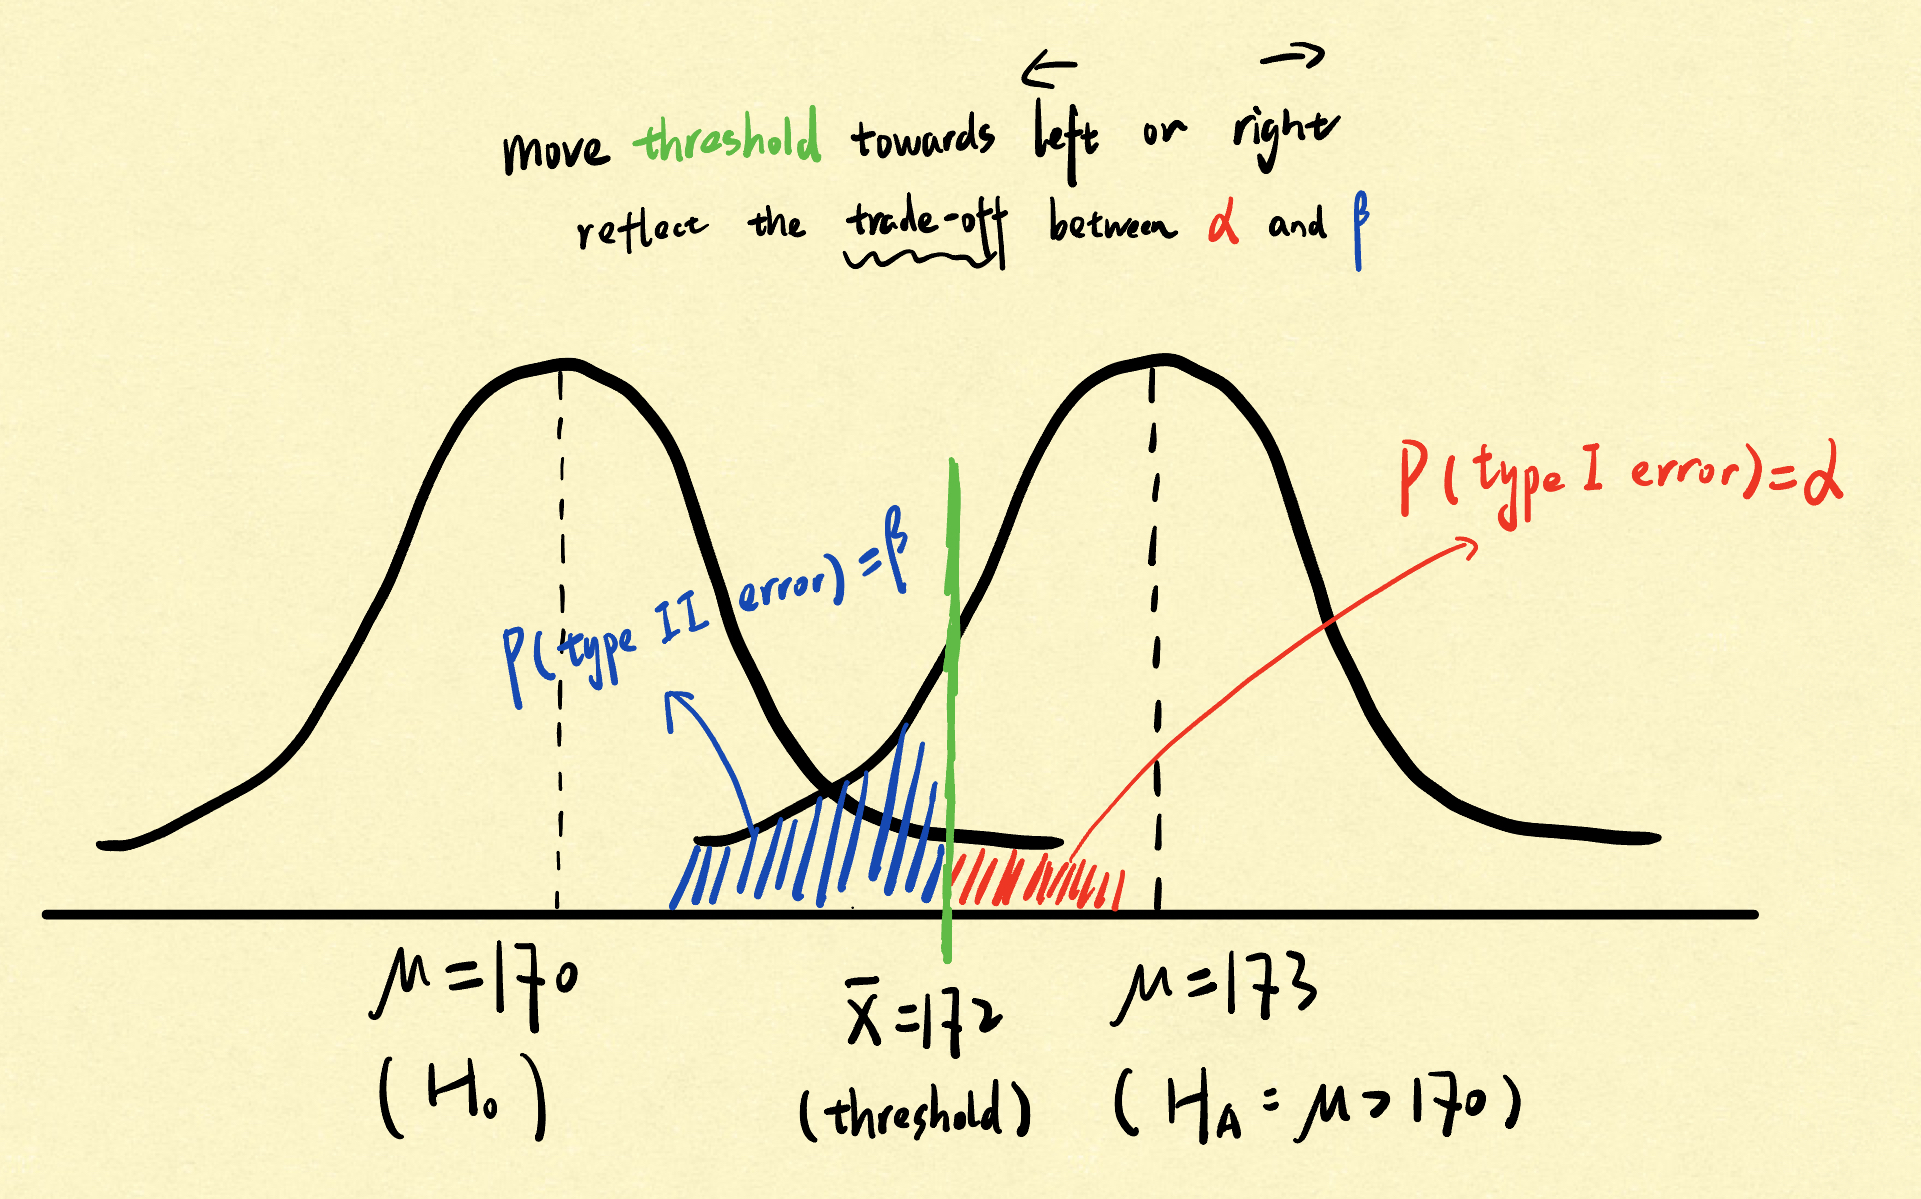 move threshold towards left or right
reflect the trade-off between α and β
P(type I error)=α
P(type II error)=β
μ=170
(H₀)
x̄=172
(threshold)
μ=173
(H_A: μ>170)